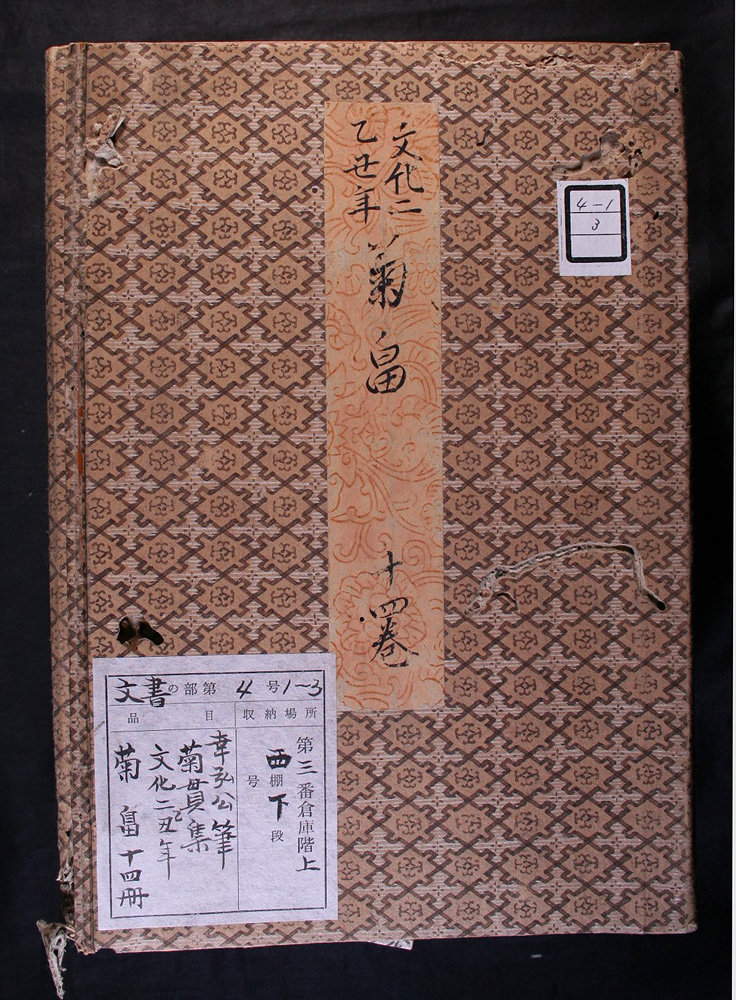 文化二
乙丑年
菊畠
十四巻
4-1
3
文書の部第4号1~3
品目
収納場所
第三番倉庫階上
西棚下段
号
幸弘公筆
菊貫集
文化二丑年
菊畠十四冊